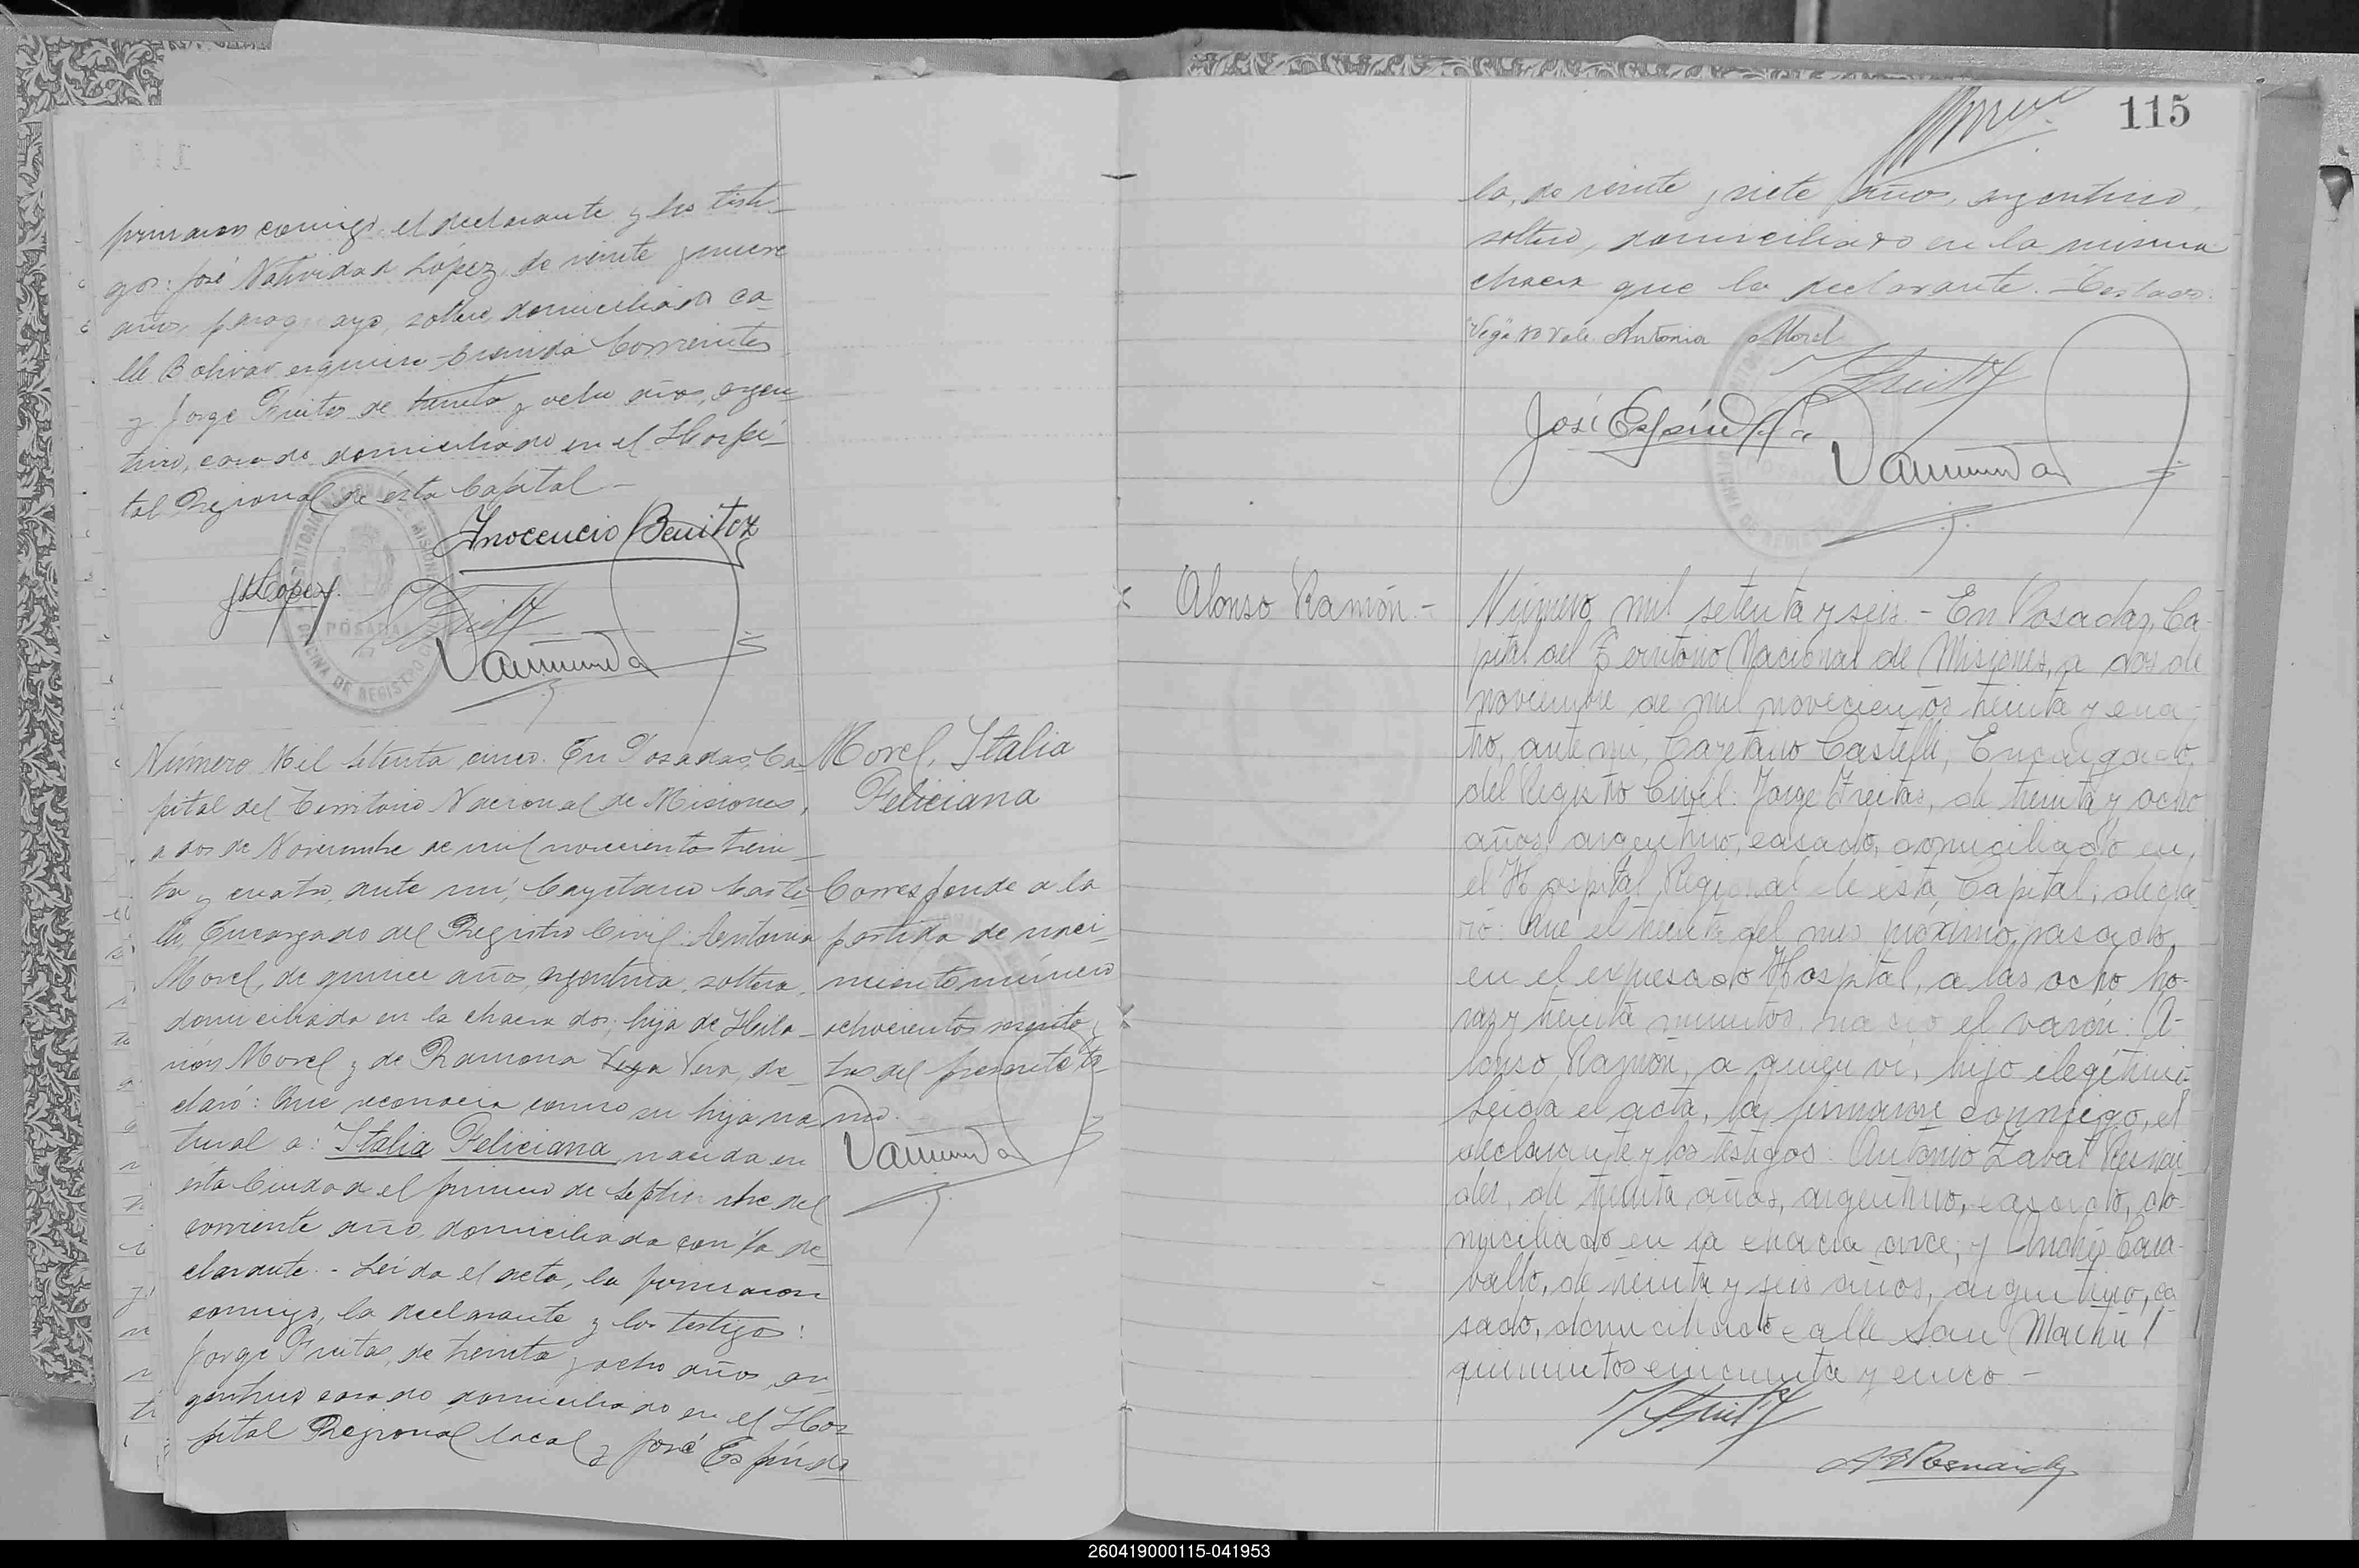 firmaron conmigo, el declarante y los testi-
gos: José Natividad López, de veinte y nueve
años, paraguayo, soltero, domiciliado ca-
lle Bolivar esquina Avenida Corrientes
y Jorge Freitas de treinta y ocho años, argen-
tino, casado domiciliado en el Hospi-
tal Regional de ésta Capital -
Inocencio Benitez
J N López
POSADAS
OFICINA DE REGISTRO
Número Mil Setenta cinco. En Posadas, Ca-
pital del Territorio Nacional de Misiones,
a dos de Noviembre de mil novecientos trein-
ta y cuatro, ante mí, Cayetano Caste-
lli, Encargado del Registro Civil: Antonia
Morel, de quince años, argentina, soltera,
domiciliada en la chacra dos, hija de Hila-
rión Morel y de Ramona Vega Vera, de-
claró: Que reconocia como su hija na-
tural a: Italia Feliciana, nacida en
ésta Ciudad el primero de Septiembre del
corriente año, domiciliada con la de-
clarante. - Leida el acta, la firmaron
conmigo, la declarante y los testigos:
Jorge Freitas, de treinta y ocho años, ar-
gentino casado domiciliado en el Hos-
pital Regional local y José Espíndo
Morel, Italia
Feliciana
Corresponde a la
partida de naci-
miento número
ochocientos
del presente to-
mo.
115
la, de veinte y siete años, argentino,
soltero, domiciliado en la misma
chacra que la declarante. - Testado:
"Vega" no vale Antonia Morel
José Espíndola
Alonso Ramón. -
Número mil setenta y seis. - En Posadas, Ca-
pital del Territorio Nacional de Misiones, a dos de
noviembre de mil novecientos treinta y cua-
tro, ante mí, Cayetano Castelli, Encargado
del Registro Civil: Jorge Freitas, de treinta y ocho
años, argentino, casado, domiciliado en
el Hospital Regional de ésta Capital, decla-
ró: Que el treinta del mes próximo pasado,
en el expresado Hospital, a las ocho ho-
ras y treinta minutos, nació el varón: A-
lonso Ramón, a quien vi, hijo ilegítimo
Leida el acta, la firmaron conmigo, el
declarante y los testigos: Antonio Zabat Resnai-
der, de treinta años, argentino, casado, do-
miciliado en la chacra once, y Andrés Cara-
ballo, de treinta y seis años, argentino, ca-
sado, domiciliado calle San Martín
quinientos cincuenta y cinco. -
260419000115-041953